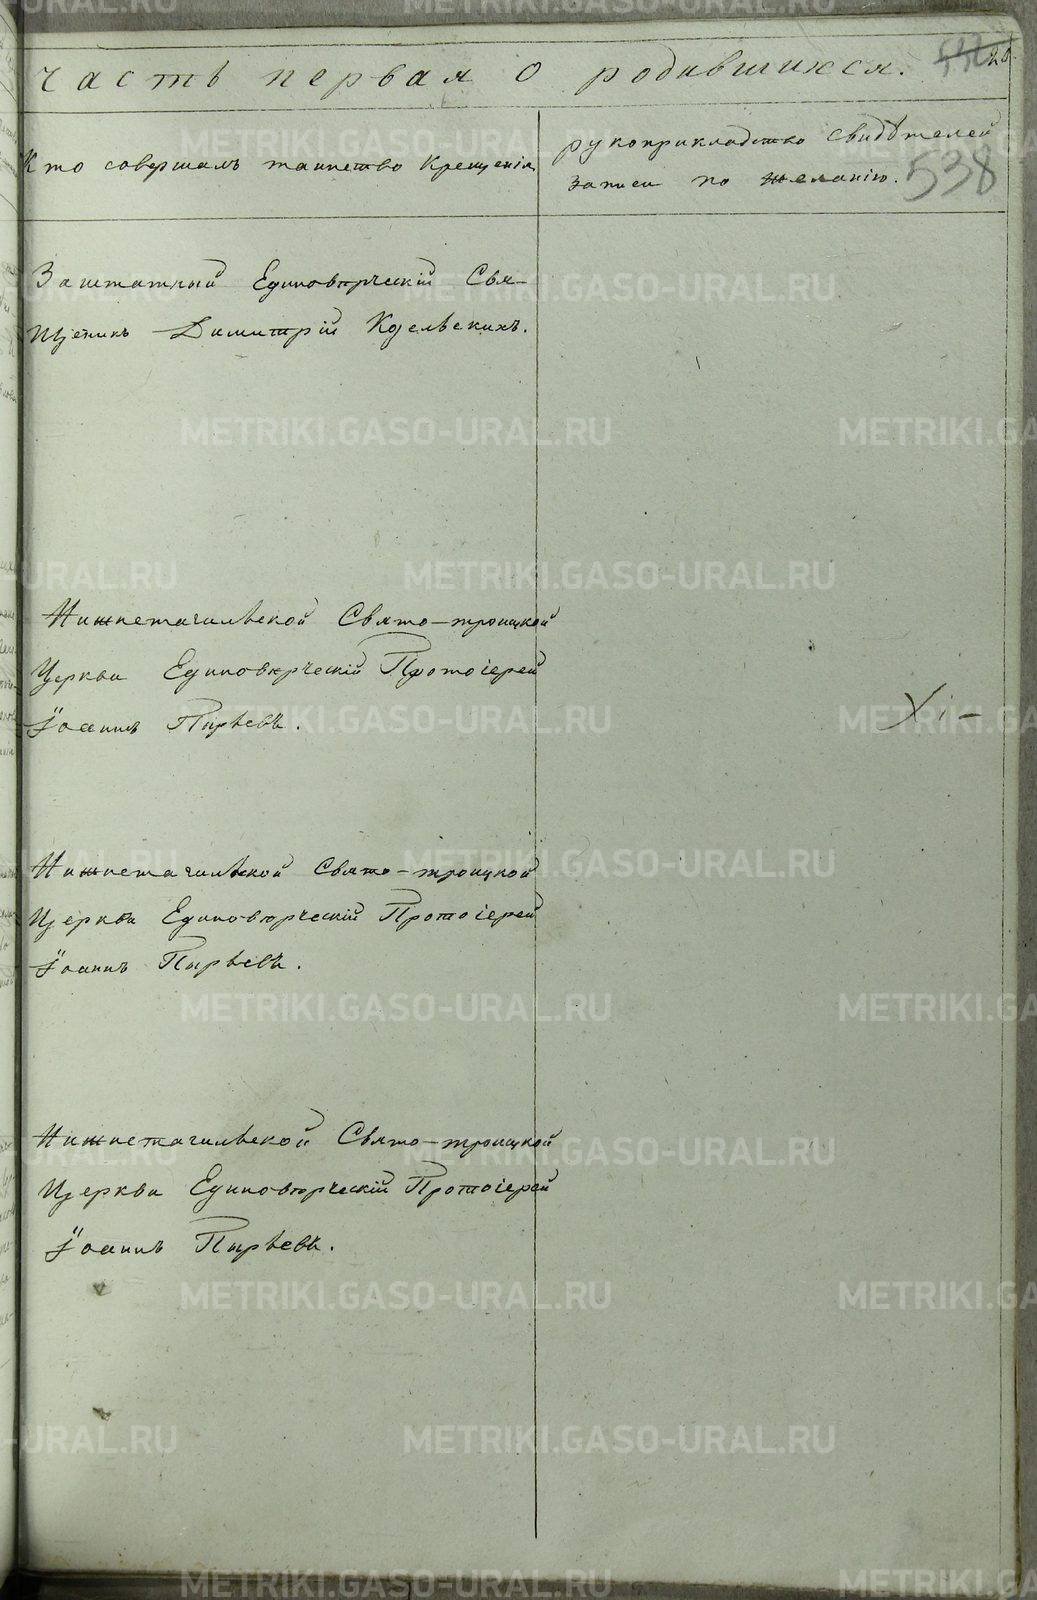 часть первая о родившихся.
28
538
Кто совершалъ таинство Крещенія
рукоприкладство свидѣтелей
записи по желанію.
Заштатный Единовѣрческій Свя-
щеникъ Димитрій Козельскихъ.
Нижнетагильской Свято-троицкой
Церкви Единовѣрческій Протоіерей
Іоаннъ Пырьевъ.
Нижнетагильской Свято-троицкой
Церкви Единовѣрческій Протоіерей
Іоаннъ Пырьевъ.
Нижнетагильской Свято-троицкой
Церкви Единовѣрческій Протоіерей
Іоаннъ Пырьевъ.
METRIKI.GASO-URAL.RU